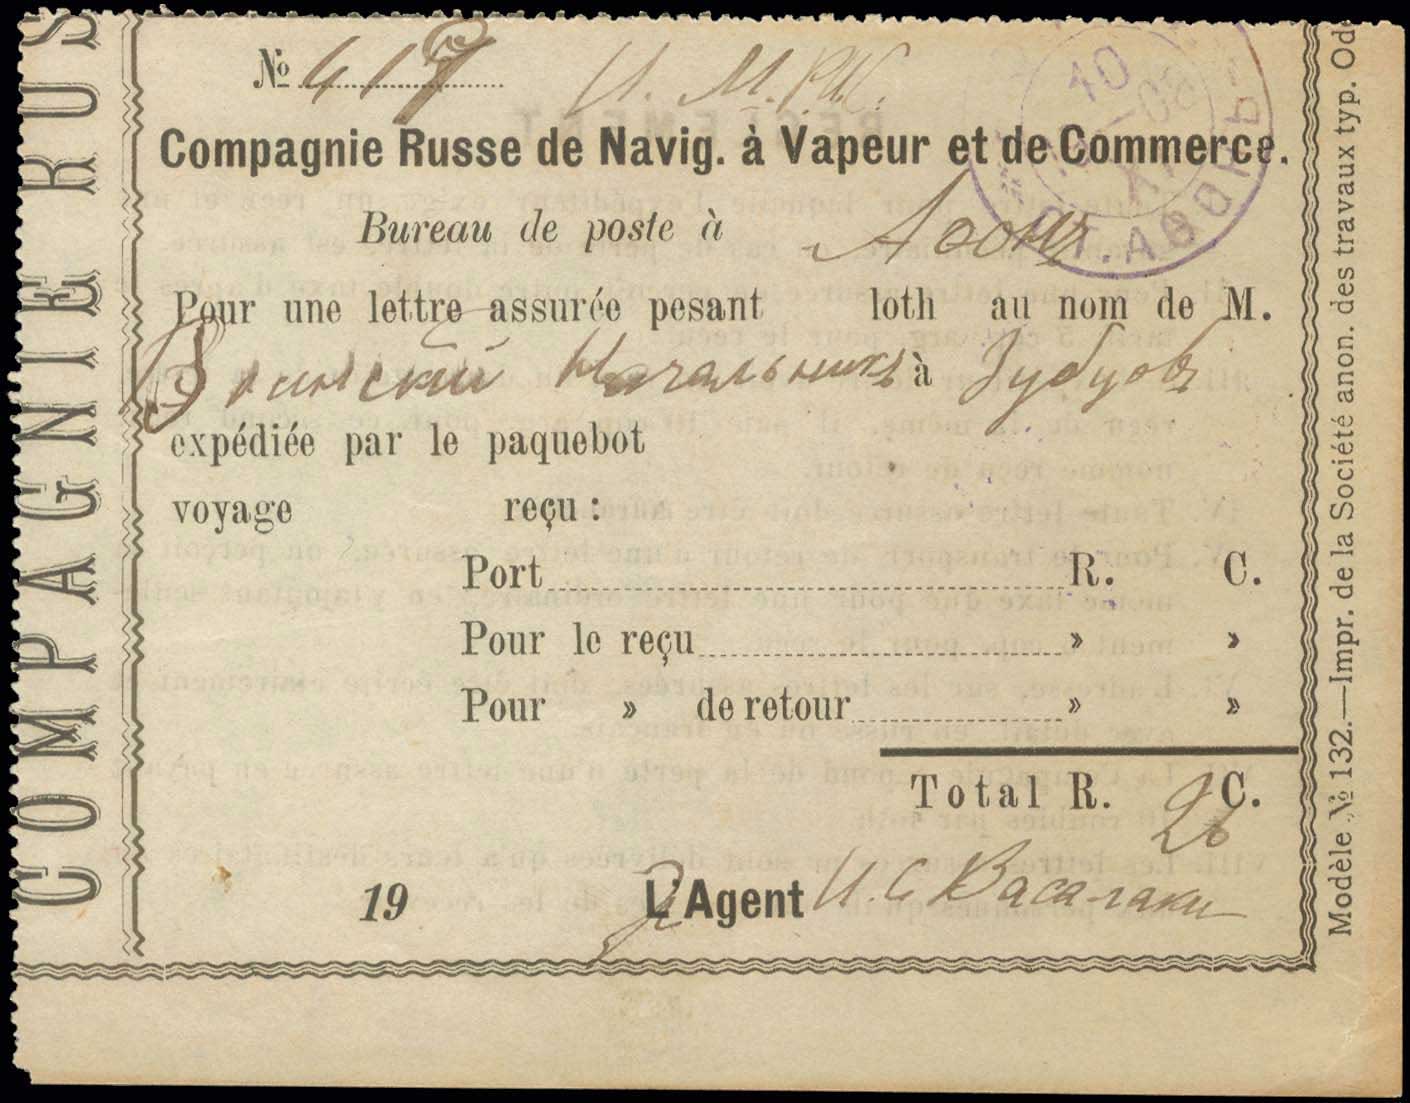 COMPAGNIE RUS
№ 417 И. М. Р. И.
Compagnie Russe de Navig. à Vapeur et de Commerce.
Bureau de poste à Аѳонъ
Pour une lettre assurée pesant loth au nom de M.
Воинскій Начальникъ à Зубцовъ
expédiée par le paquebot
voyage reçu :
Port R. C.
Pour le reçu » »
Pour » de retour » »
Total R. C.
19 L'Agent И. С.
Modèle № 132.—Impr. de la Société anon. des travaux typ. Ode
10
СТ. АѲОНЪ